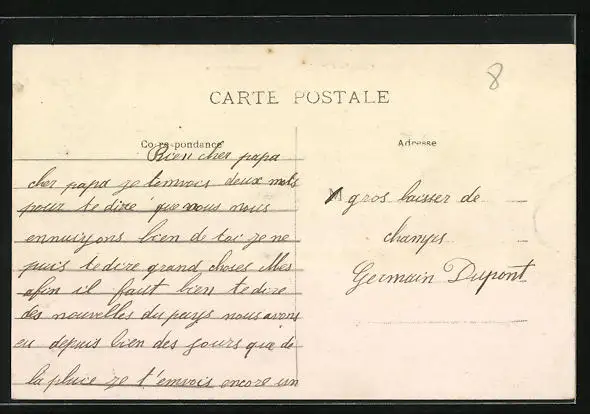 8
CARTE POSTALE
Correspondance
Adresse
Bien cher papa
cher papa je temvois deux mots
pour te dire que nous nous
ennuiyons bien de toi je ne
puis te dire grand choses Mes
afin il faut bien te dire
des nouvelles du pays nous avons
eu depuis bien des jours que de
la pluie je t'emvois encore un
M gros baisser de
champs
Germain Dupont